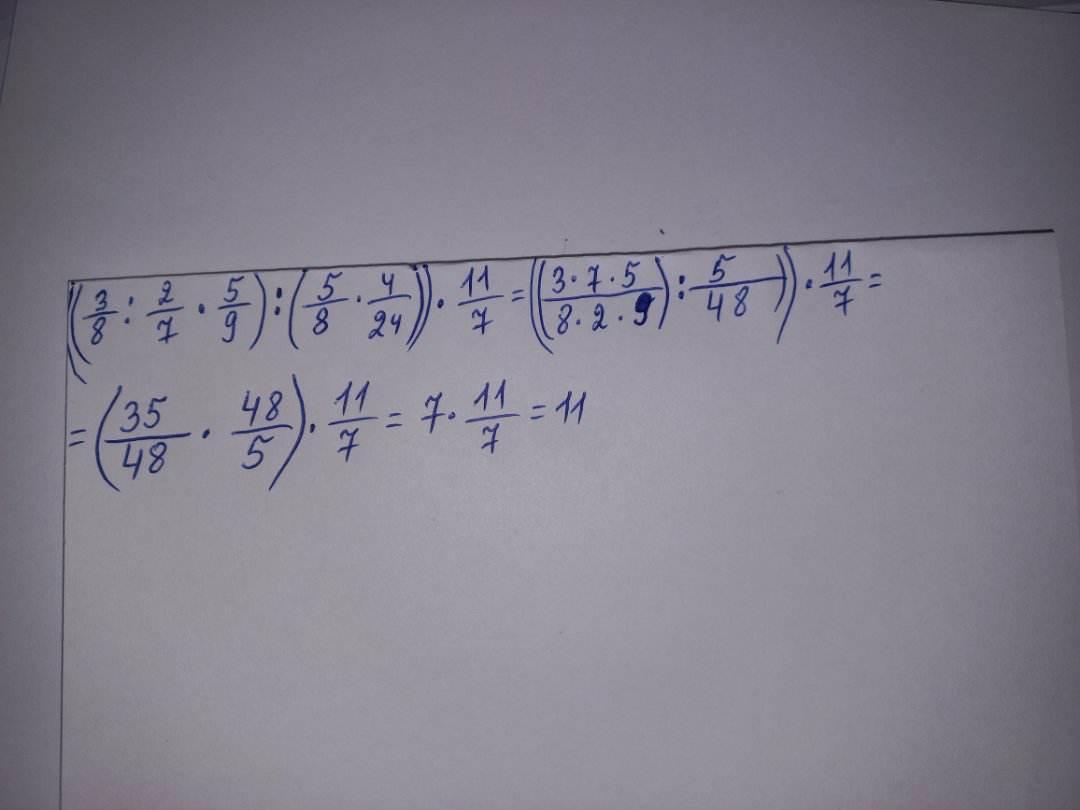 ((3/8 : 2/7 · 5/9) : (5/8 · 4/24)) · 11/7 = ((3·7·5/8·2·9) : 5/48) · 11/7 =
= (35/48 · 48/5) · 11/7 = 7 · 11/7 = 11